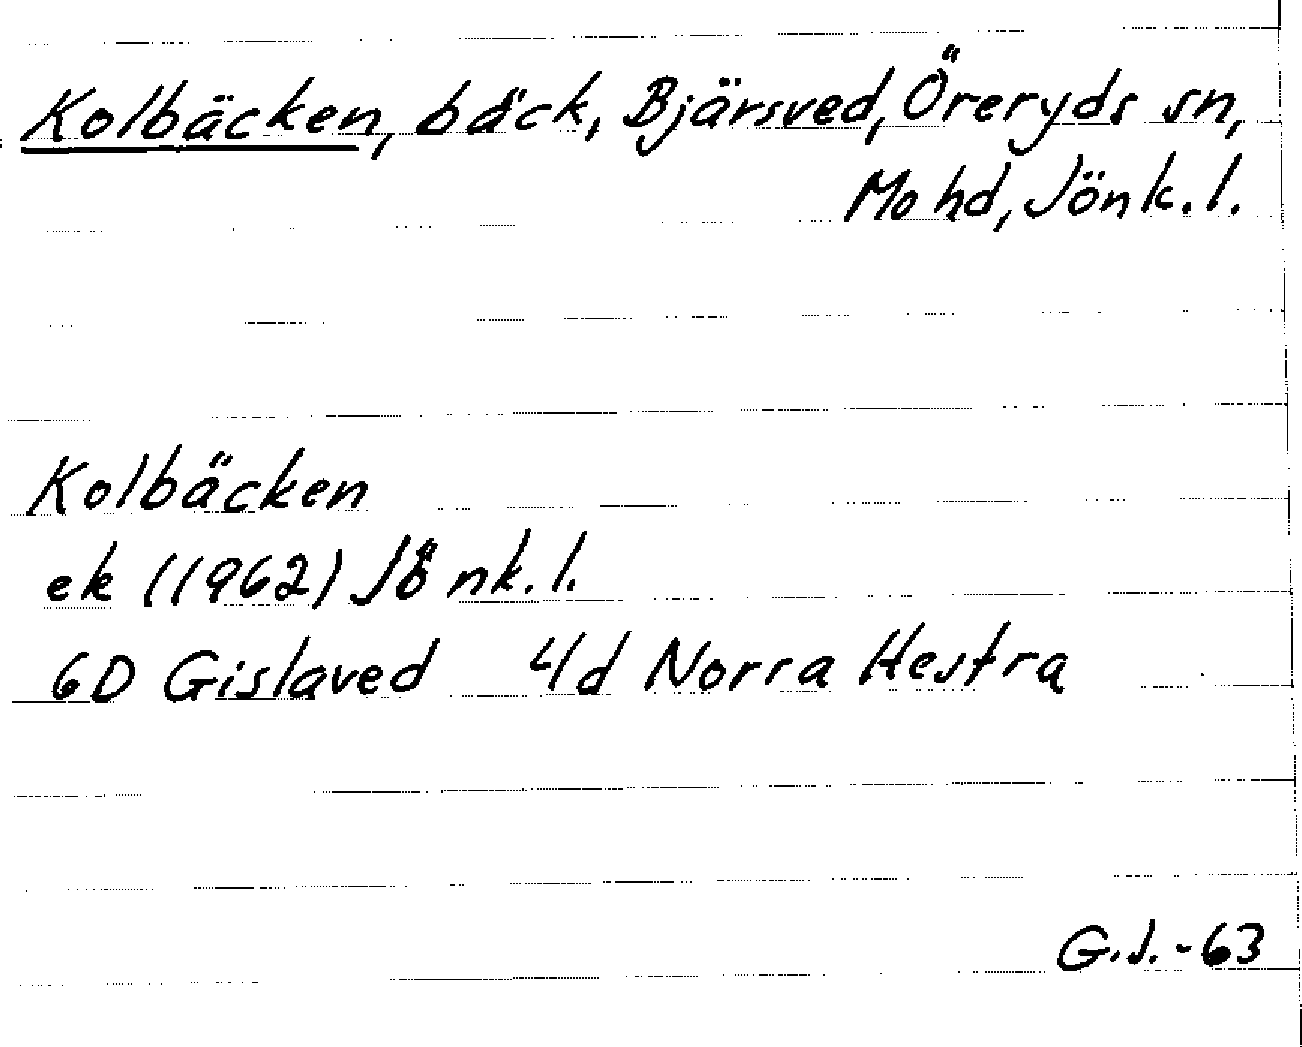 Kolbäcken, bäck, Bjärsved, Öreryds sn,
Mo hd, Jönk. l.
Kolbäcken
ek (1962) Jönk. l.
6D Gislaved 4d Norra Hestra
G.J. - 63